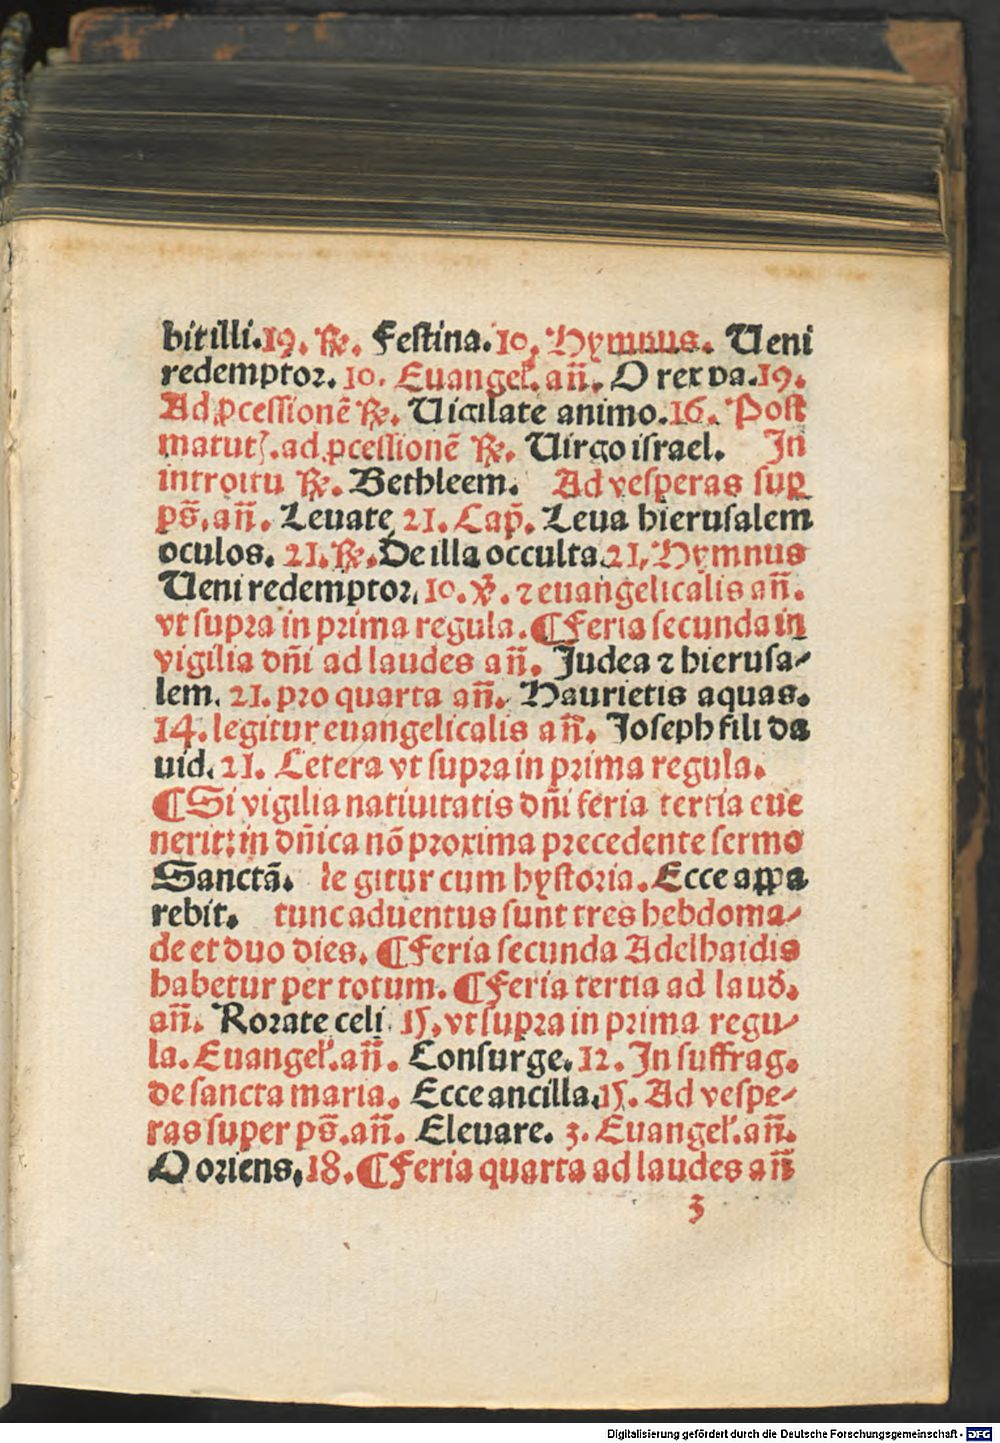 bit illi. 19. ℟. Festina. 10. Hymnus. Ueni
redemptoꝛ. 10. Euangel̛. an̄. O rex va. 19.
Ad ꝓcessionē ℟. Uigilate animo. 16. Post
matutꝫ. ad ꝓcessionē ℟. Uirgo israel. In
introitu ℟. Bethleem. Ad vesperas sup
ps̄. an̄. Leuate 21. Cap̄. Leua hierusalem
oculos. 21. ℟. De illa occulta. 21. Hymnus
Ueni redemptoꝛ. 10. ℣. ⁊ euangelicalis an̄.
vt supꝛa in pꝛima regula. ¶ Feria secunda in
vigilia dn̄i ad laudes an̄. Judea ⁊ hierusa⸗
lem. 21. pꝛo quarta an̄. Haurietis aquas.
14. legitur euangelicalis an̄. Joseph fili da
uid. 21. Cetera vt supꝛa in pꝛima regula.
¶ Si vigilia natiuitatis dn̄i feria tertia eue
nerit: in dn̄ica nō pꝛoxima pꝛecedente sermo
Sanctā. le gitur cum hystoꝛia. Ecce appa
rebit. tunc aduentus sunt tres hebdoma⸗
de et duo dies. ¶ Feria secunda Adelhaidis
habetur per totum. ¶ Feria tertia ad laud.
an̄. Roꝛate celi 15. vt supꝛa in pꝛima regu⸗
la. Euangel̛. an̄. Consurge. 12. In suffrag.
de sancta maria. Ecce ancilla. 15. Ad vespe⸗
ras super ps̄. an̄. Eleuare. 3. Euangel̛. an̄.
O oꝛiens. 18. ¶ Feria quarta ad laudes an̄
3
Digitalisierung gefördert durch die Deutsche Forschungsgemeinschaft - DFG